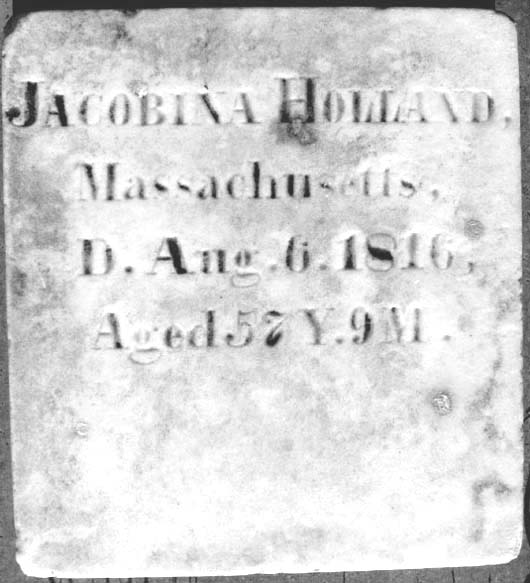 JACOBINA HOLLAND,
Massachusetts,
D. Aug. 6. 1816,
Aged 57 Y. 9 M.